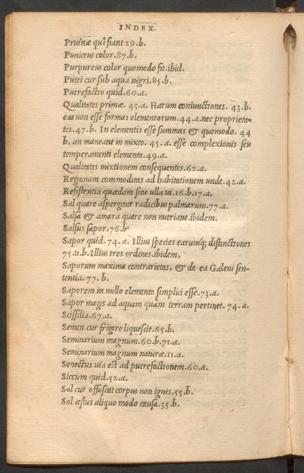 INDEX.
Pruinæ quî fiant 29.b.
Puniceus color.87.b.
Purpureus color quomodo fit.ibid.
Putei cur sub aqua nigri.85.b.
Putrefactio quid.60.a.
Qualitates primæ. 43.a. Harum coniunctiones. 43.b.
eas non esse formas elementorum.44.a.nec proprieta-
tes.47.b. In elementis esse summas & quomodo. 44
b. an maneant in mixto. 45.a. esse complexionis seu
temperamenti elementa.49.a.
Qualitates mixtionem consequentes.62.a.
Regionum commoditas ad habitationem unde.42.a.
Resistentia quædam sine ulla ui.16.b.17.a.
Sal quare aspergitur radicibus palmarum.77.a.
Salsa & amara quare non nutriant.ibidem.
Salsus sapor.76.b
Sapor quid.74.a. Illius species earumq; distinctiones
75.a.b. Illius tres ordines.ibidem,
Saporum maxima contrarietas, & de ea Galeni sen-
tentia.77.b.
Saporem in nullo elemento simplici esse.73.a.
Sapor magis ad aquam quam terram pertinet. 74.a.
Scissilia.67.a.
Semen cur frigore liquescit.65.b.
Seminarium magnum.60.b.71.a.
Seminarium magnum naturæ.11.a.
Senectus uia est ad putrefactionem.60.a.
Siccum quid.52.a.
Sol cur offuscat corpus non ignis.55.b.
Sol æstus aliquo modo causa.35.b.